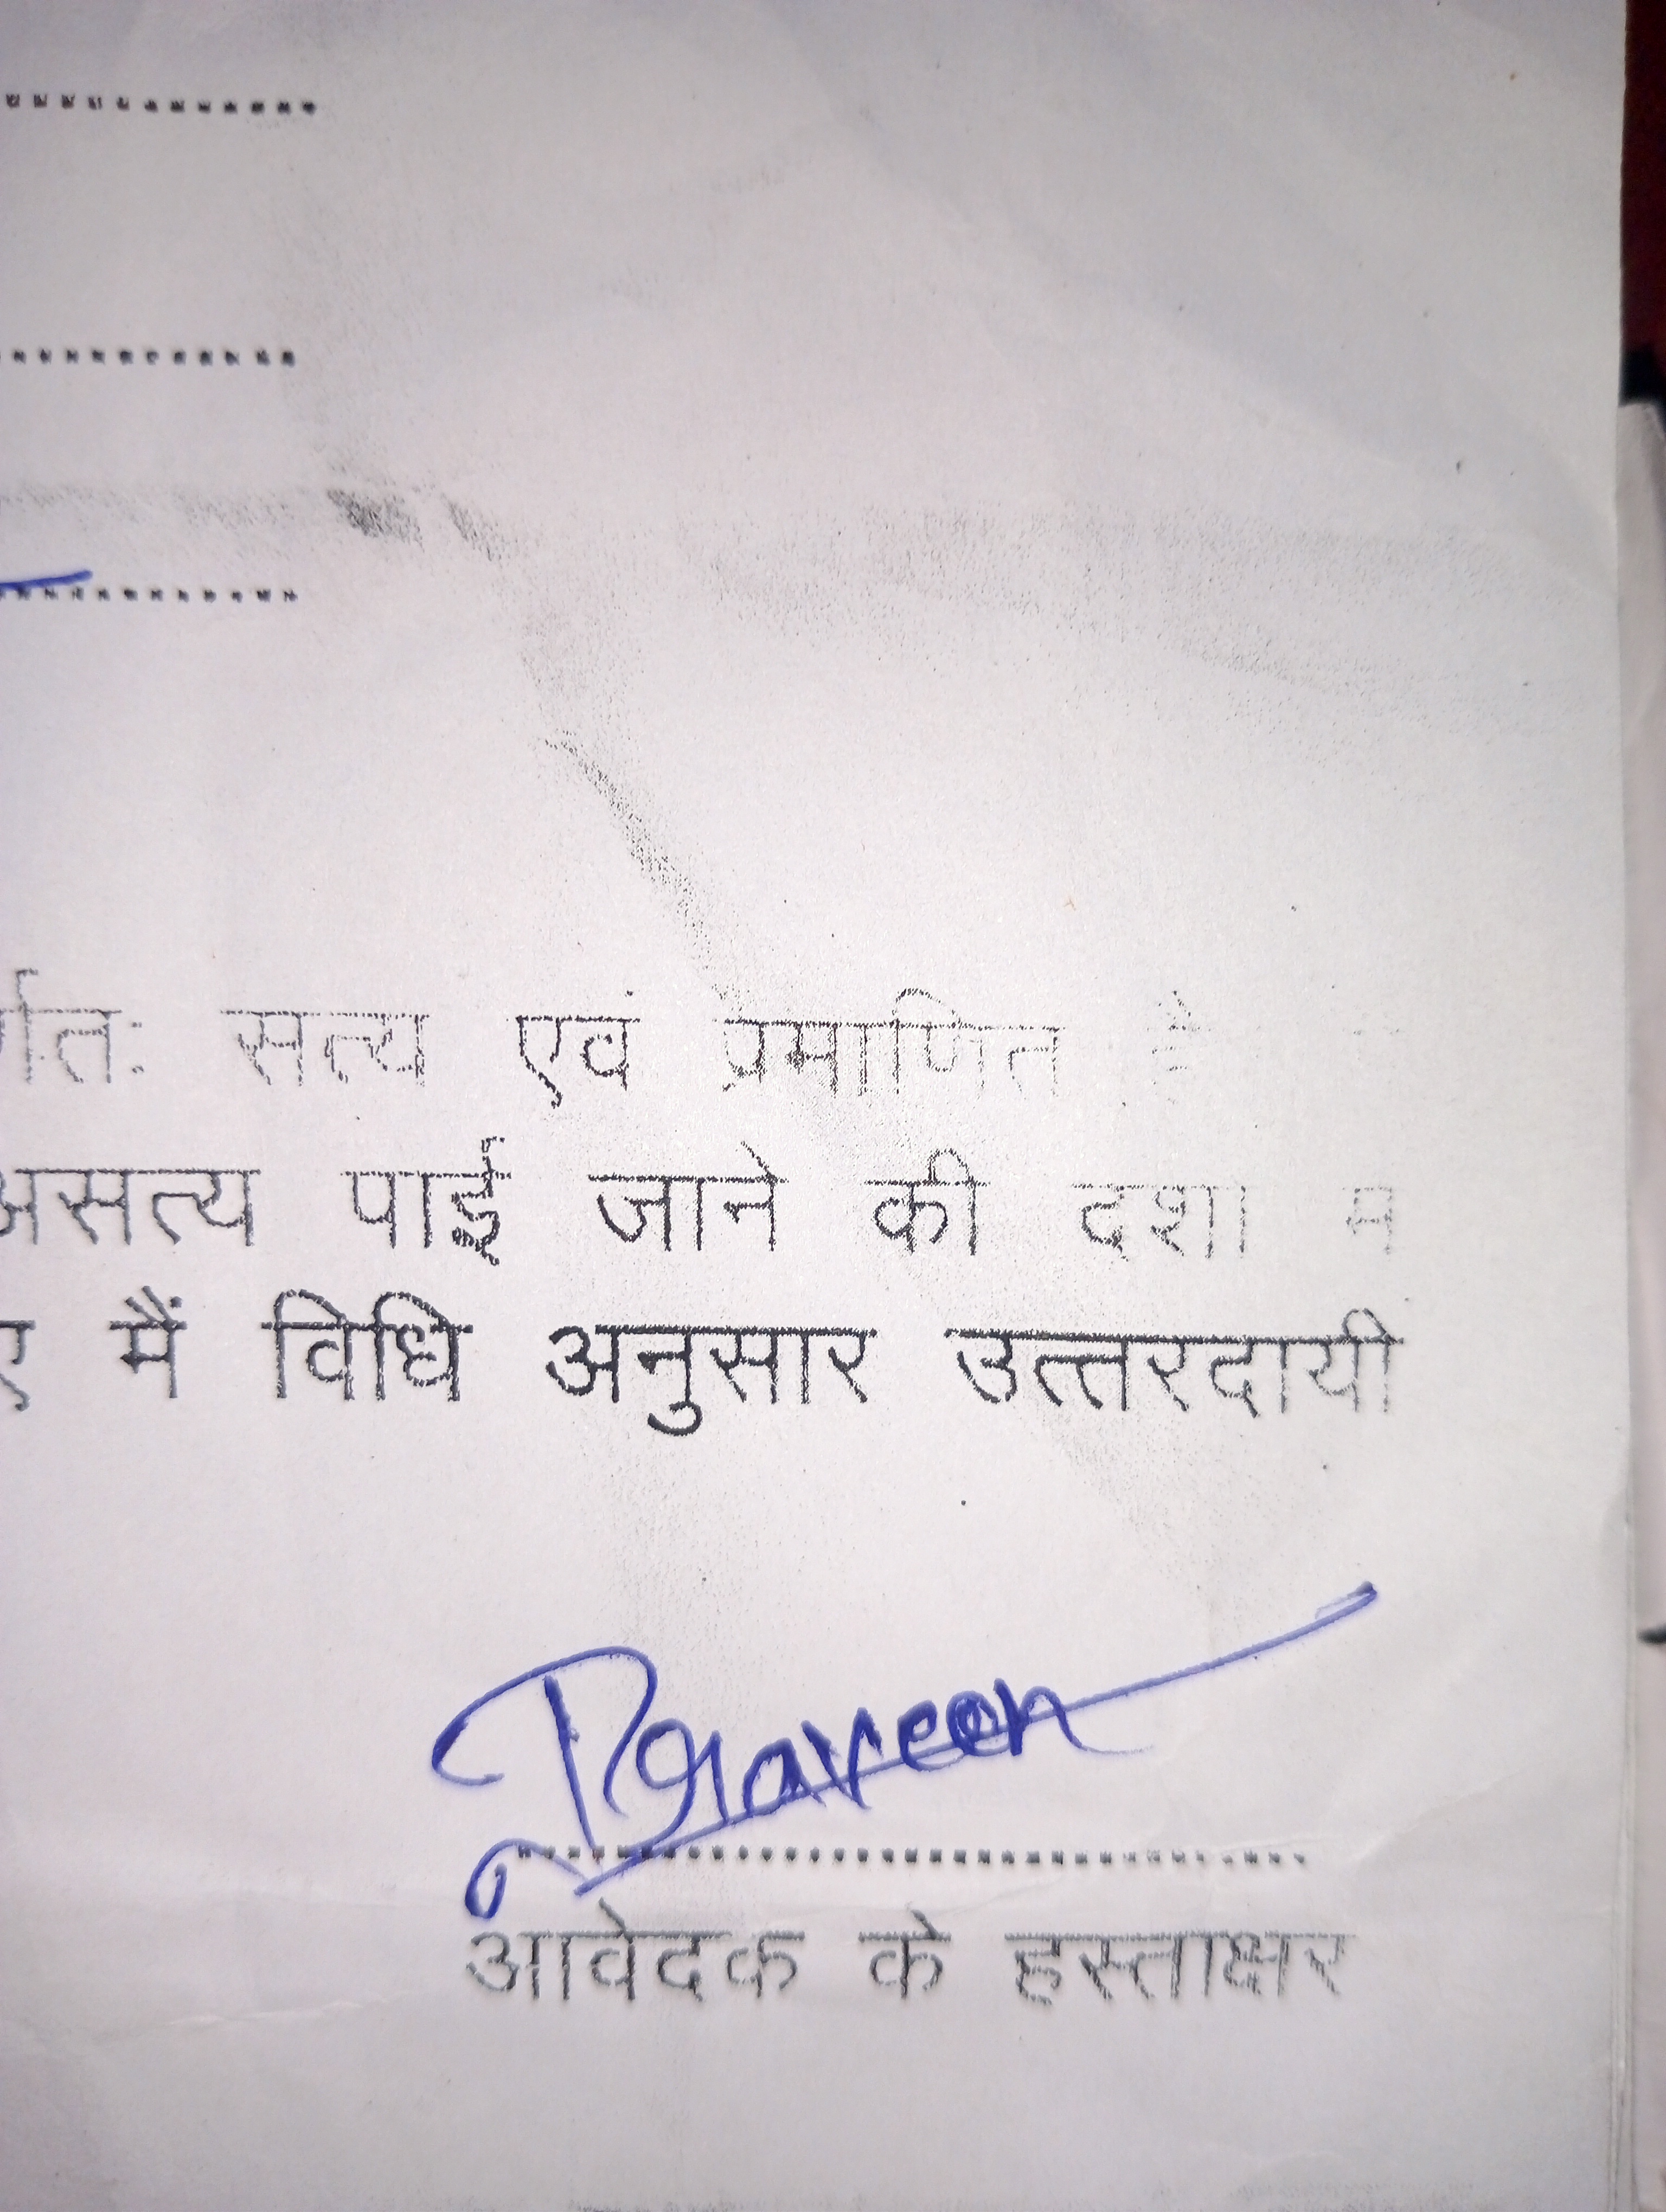 सत्य एवं प्रमाणित है
असत्य पाई जाने की दशा में
मैं विधि अनुसार उत्तरदायी
Praveen
आवेदक के हस्ताक्षर